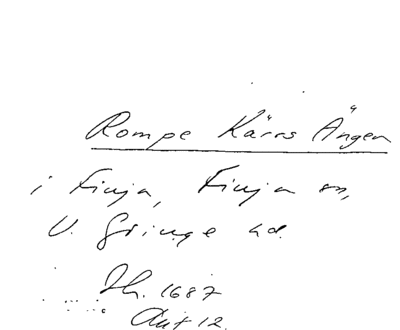 Rompe Kärrs Ängen
i Finja, Finja sn,
V. Göinge hd.
Jb. 1687
Avt 12.